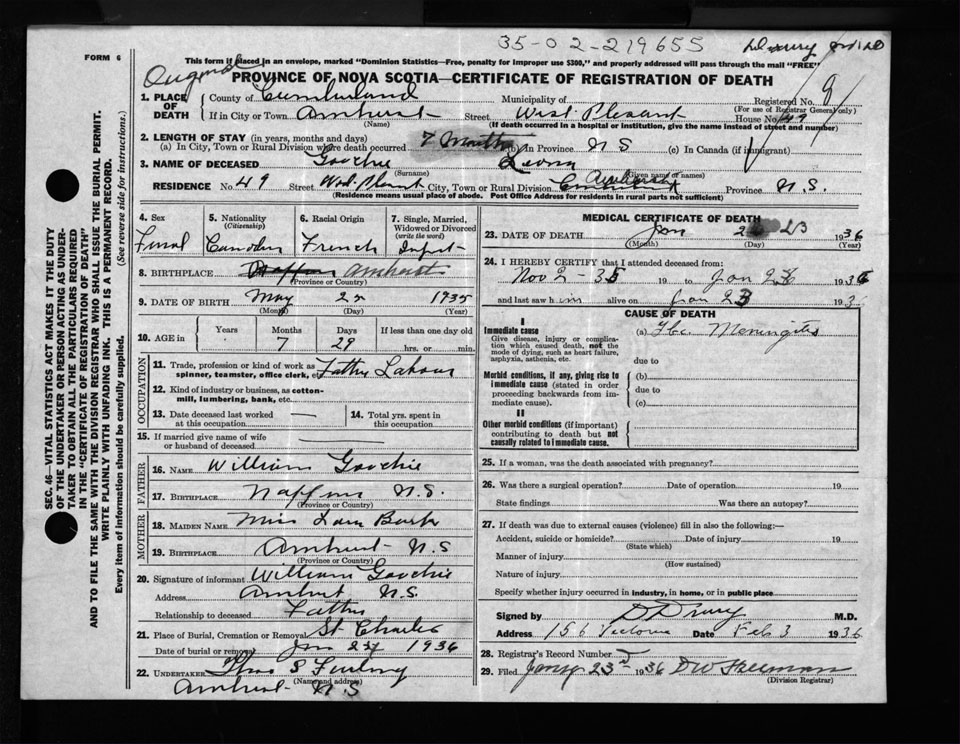 35-02-219655
FORM 6
This form if placed in an envelope, marked "Dominion Statistics—Free, penalty for improper use $300," and properly addressed will pass through the mail "FREE"
Original
PROVINCE OF NOVA SCOTIA—CERTIFICATE OF REGISTRATION OF DEATH
SEC. 46—VITAL STATISTICS ACT MAKES IT THE DUTY
OF THE UNDERTAKER OR PERSON ACTING AS UNDER-
TAKER TO OBTAIN ALL THE PARTICULARS REQUIRED
IN THE "CERTIFICATE OF REGISTRATION OF DEATH"
AND TO FILE THE SAME WITH THE DIVISION REGISTRAR WHO SHALL ISSUE THE BURIAL PERMIT.
WRITE PLAINLY WITH UNFADING INK. THIS IS A PERMANENT RECORD.
Every item of information should be carefully supplied. (See reverse side for instructions.)
1. PLACE OF DEATH
County of Cumberland Municipality of Registered No. 9
(For use of Registrar General only)
If in City or Town Amherst Street West Pleasant House No. 49
(Name) (If death occurred in a hospital or institution, give the name instead of street and number)
2. LENGTH OF STAY (in years, months and days)
(a) In City, Town or Rural Division where death occurred 7 Months (b) In Province N S (c) In Canada (if immigrant)
3. NAME OF DECEASED
(Surname) (Given name or names)
RESIDENCE No. 49 Street West Pleasant City, Town or Rural Division Amherst Province N.S.
(Residence means usual place of abode. Post Office Address for residents in rural parts not sufficient)
4. Sex
5. Nationality (Citizenship)
6. Racial Origin French
7. Single, Married, Widowed or Divorced (write the word) Infant
8. BIRTHPLACE Nappan Amherst
(Province or Country)
9. DATE OF BIRTH May 22 1935
(Month) (Day) (Year)
10. AGE in Years Months 7 Days 29 If less than one day old hrs. or min.
OCCUPATION
11. Trade, profession or kind of work as spinner, teamster, office clerk, etc. Father Labour
12. Kind of industry or business, as cotton-mill, lumbering, bank, etc.
13. Date deceased last worked at this occupation
14. Total yrs. spent in this occupation
15. If married give name of wife or husband of deceased
FATHER
16. NAME William
17. BIRTHPLACE Nappan N.S.
(Province or Country)
MOTHER
18. MAIDEN NAME Miss
19. BIRTHPLACE Amherst N.S
(Province or Country)
20. Signature of informant William
Address Amherst N.S.
Relationship to deceased Father
21. Place of Burial, Cremation or Removal St Charles
Date of burial or removal Jan 24 1936
22. UNDERTAKER
(Name and address)
Amherst N.S
MEDICAL CERTIFICATE OF DEATH
23. DATE OF DEATH Jan 23 1936
(Month) (Day) (Year)
24. I HEREBY CERTIFY that I attended deceased from:
Nov 2 - 35 19 to Jan 23 1936
and last saw him alive on Jan 23 1936
CAUSE OF DEATH
I
Immediate cause (a) Tbc. Meningitis
Give disease, injury or complication which caused death, not the mode of dying, such as heart failure, asphyxia, asthenia, etc.
due to
Morbid conditions, if any, giving rise to immediate cause (stated in order proceeding backwards from immediate cause).
(b)
due to
(c)
II
Other morbid conditions (if important) contributing to death but not causally related to immediate cause.
25. If a woman, was the death associated with pregnancy?
26. Was there a surgical operation? Date of operation 19
State findings Was there an autopsy?
27. If death was due to external causes (violence) fill in also the following:—
Accident, suicide or homicide? Date of injury 19
(State which)
Manner of injury
(How sustained)
Nature of injury
Specify whether injury occurred in industry, in home, or in public place
Signed by D Drury M.D.
Address 156 Victoria Date Feb 3 1936
28. Registrar's Record Number
29. Filed 23 1936 DW Freeman
(Division Registrar)